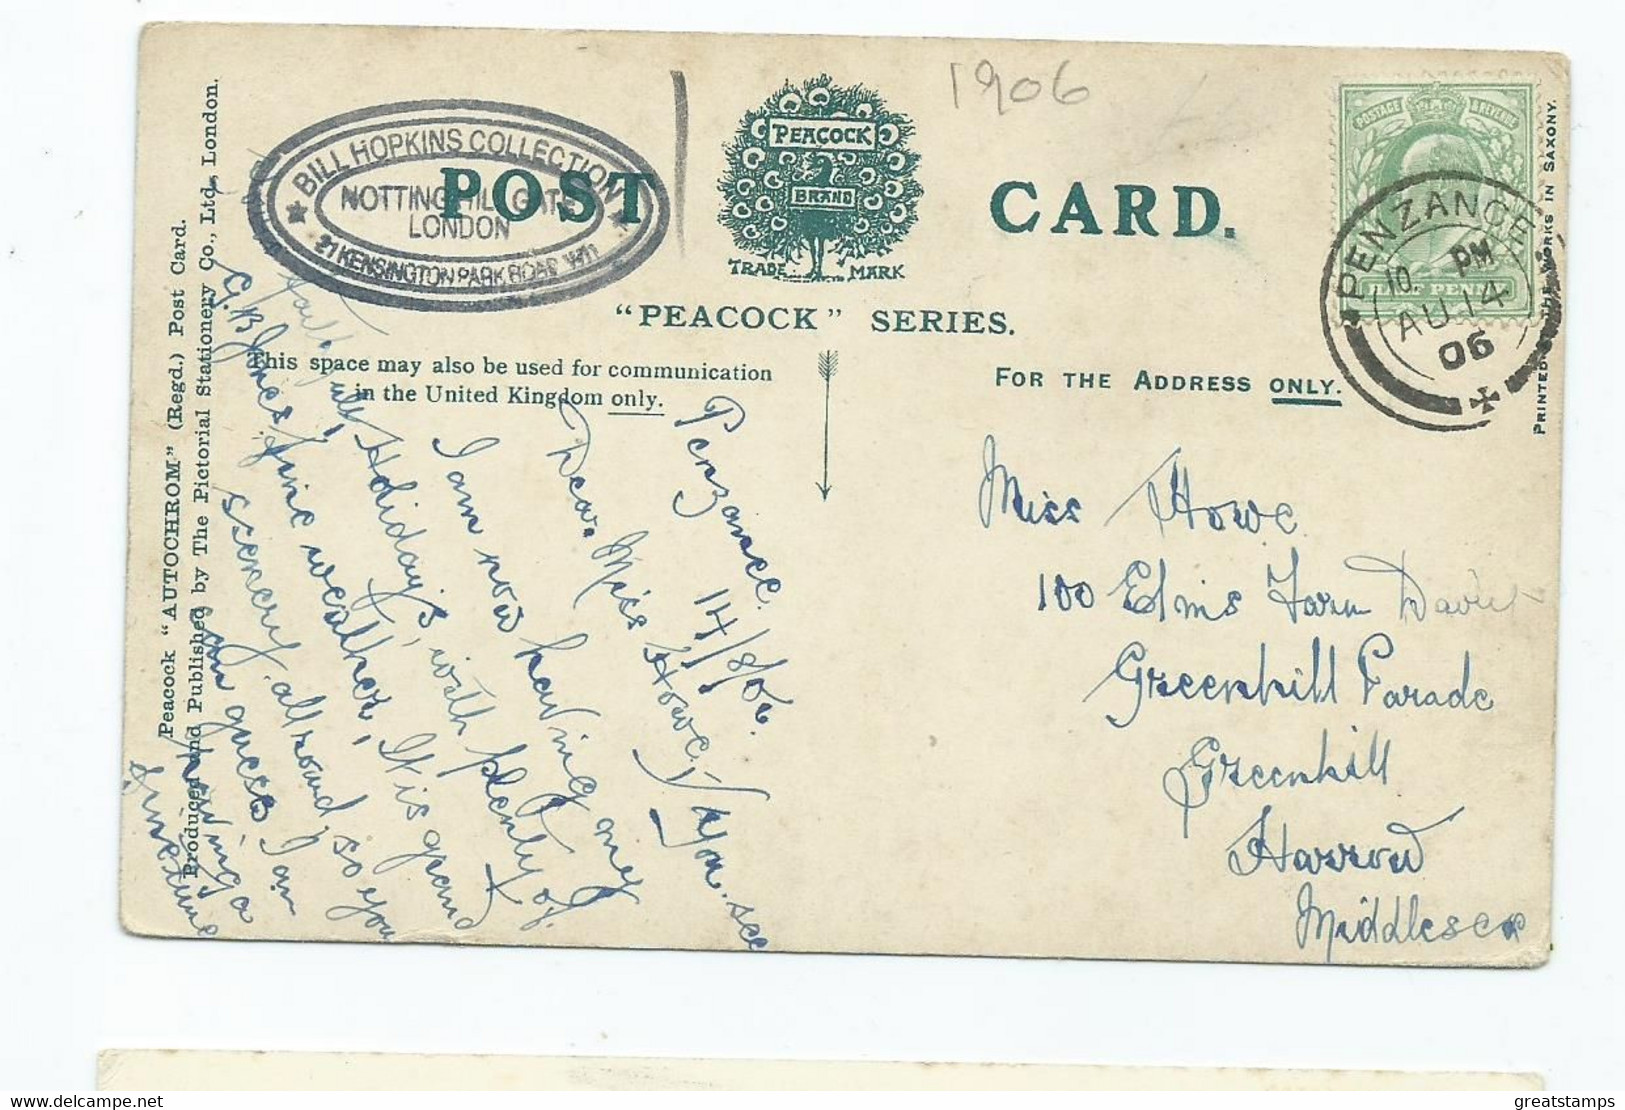 1906
BILL HOPKINS COLLECTION
NOTTING HILL GATE
LONDON
21 KENSINGTON PARK ROAD W11
POST CARD.
PEACOCK
BRAND
TRADE MARK
"PEACOCK" SERIES.
This space may also be used for communication
in the United Kingdom only.
FOR THE ADDRESS ONLY.
POSTAGE & REVENUE
HALF PENNY
PENZANCE
10 PM
AU 14
06
PRINTED AT THE WORKS IN SAXONY.
Peacock "AUTOCHROM" (Regd.) Post Card.
Produced and Published by The Pictorial Stationery Co., Ltd., London.
Penzance.
14/8/06.
Dear Miss Howe, / You see
I am now having my
Holiday's, with plenty of
fine weather, It is grand
scenery all round, so you
can guess I am
having a
fine time
Yours faithfully,
C. B. Jones
Miss Howe
100 Elms Farm
Greenhill Parade
Greenhill
Harrow
Middlesex
delcampe.net
greatstamps